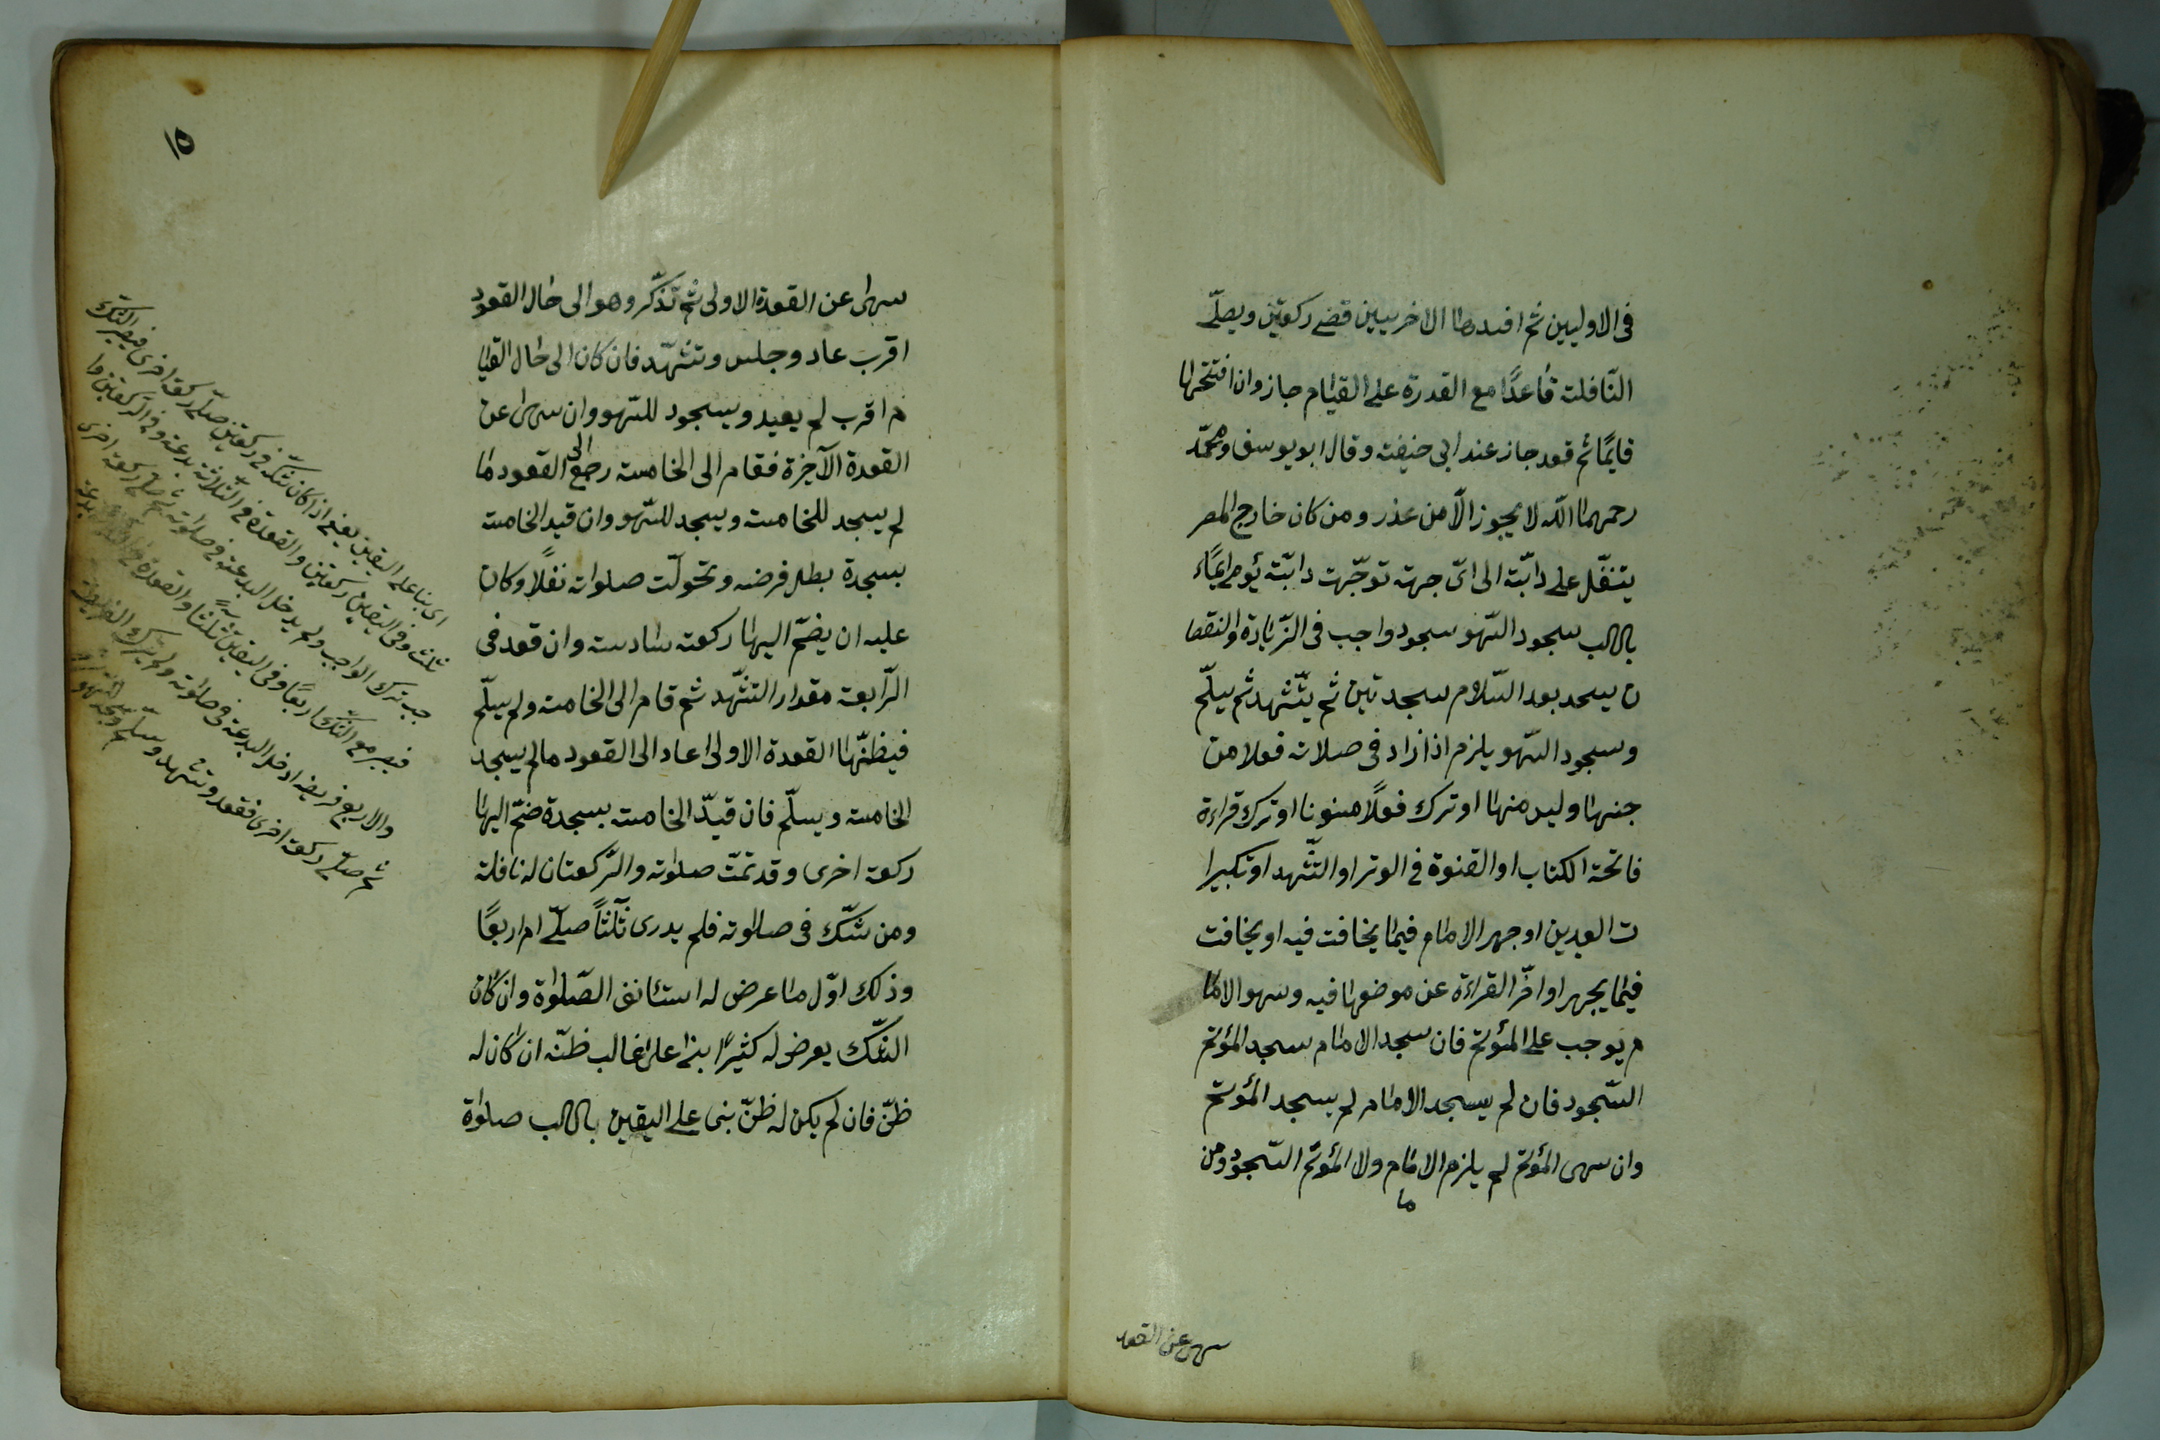 فى الاوليين ثم افسدهاا الاخريين قضے ركعتين ويصلّے
النّافلته قاعدًا مع القدرة علے القيام جاز وان افتتحها
قايمًا ثم قعد جاز عند ابى حنيفته وقال ابو يوسف ومحمّد
رحمهماا اللّه لا يجوز الّا من عذر ومن كان خارج المصر
يتنفّل علے دابّته الى اىّ جهته توجّهت دابّته يؤمے ايماًء
باب سجود السّهو سجود واجب فى الزّيادة والنقصا
ن يسجد بعد السّلام سجدتين ثم يتّشهد ثم يسلّم
وسجود السّهو يلزم اذا زاد فى صلاته فعلا من
جنسهاا وليس منهاا او ترك فعلًا مسنونا او ترك قراءة
فاتحته الكتاب او القنوة فى الوتر او التّشهد او تكبيرا
ت العيدين او جهر الامام فيما يخافت فيه او يخافت
فيما يجهر او اخّر القراءة عن موضعهاا فيه وسهو الاما
م يوجب علے المؤتم فان سجد الامام سجد المؤتم
السّجود فان لم يسجد الامام لم يسجد المؤتم
وان سهى المؤتم لم يلزم الامام ولا المؤتم السّجود ومن
ما
سهى عن القعد
١٥
سهى عن القعدة الاولى ثم تذكّر وهو الى حال القعود
اقرب عاد وجلس وتشهّد فان كان الى حال القيا
م اقرب لم يعيد ويسجود للسّهو وان سهى عن
القعدة الآخيرة فقام الى الخامسته رجع الى القعود ما
لم يسجد للخامسته ويسجد للسّهو وان قيد الخامسته
بسجدة بطل فرضه وتحولّت صلواته نفلًا وكان
عليه ان يضمّ اليهاا ركعته سادسته وان قعد فى
الرّابعته مقدار التشّهد ثم قام الى الخامسته ولم يسلّم
فيظنّهاا القعدة الاولى عاد الى القعود مالم يسجد
الخامسته ويسلّم فان قيدّ الخامسته بسجدة ضمّ اليها
ركعته اخرى وقد تمّت صلوته والرّكعتان له نافلته
ومن شكّ فى صلاوته فلم يدرى ثلثًا صلّے ام اربعًا
وذلك اوّل ما عرض له استئانف الصّلوٰة وان كان
الشّك يعرض له كثيرًا بنى على غالب ظنّه ان كان له
ظنّ فان لم يكن له ظنّ بنى علے اليقين باب صلوٰة
اى بنا على اليقين يعنے اذا كان شكّه فے ركعتين صلّے ركعته اخرى فيصير الشّك
ثلث وفى اليقين ركعتين والقعدة فے الثلاثته بدعته وفى الركعتين وا
جب ترك الواجب ولم يدخل البدعته فے صلواته ثم صلّے ركعته اخرى
فيصير مع الشّك اربعًا وفى اليقين ثلثا والقعدة
والاربع فريضه ادخل البدعته فى صلوته ولم يترك الفريضته
ثم صلّے ركعته اخرى فقعد وتشهد وسلّم